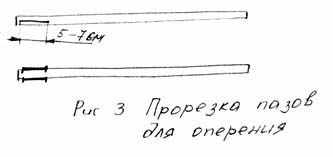 5-7см
Рис 3 Прорезка пазов
для оперения